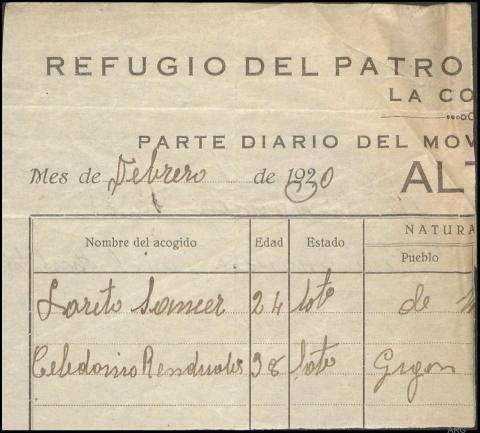 REFUGIO DEL PATRO
LA CO
PARTE DIARIO DEL MOV
Mes de Febrero de 1920 ALT
NATURA
Nombre del acogido Edad Estado Pueblo
Loreto 24 de
Celedonio 38 Gijon
ARG